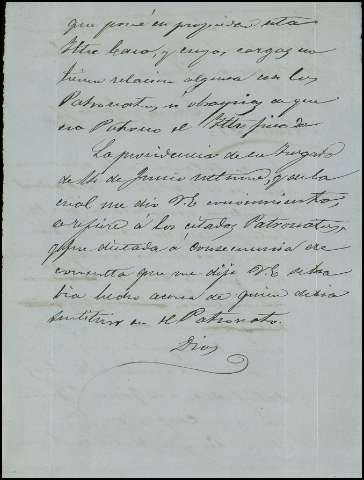 que poné en propiedad esta
Iltre Casa, y cuyas cargas no
tienen relacion alguna con los
Patronatos, ni obras pias de que
era Patrono el Iltre finado.
La providencia de su Juzgado
de 14 de Junio ultimo, de la
cual me dió V.E. conocimiento,
se refiere á los citados Patronatos,
y fue dictada á consecuencia de
consulta que me dijo V.E. se ha
bia hecho acerca de quien debia
sustituir en el Patronato.
Dios